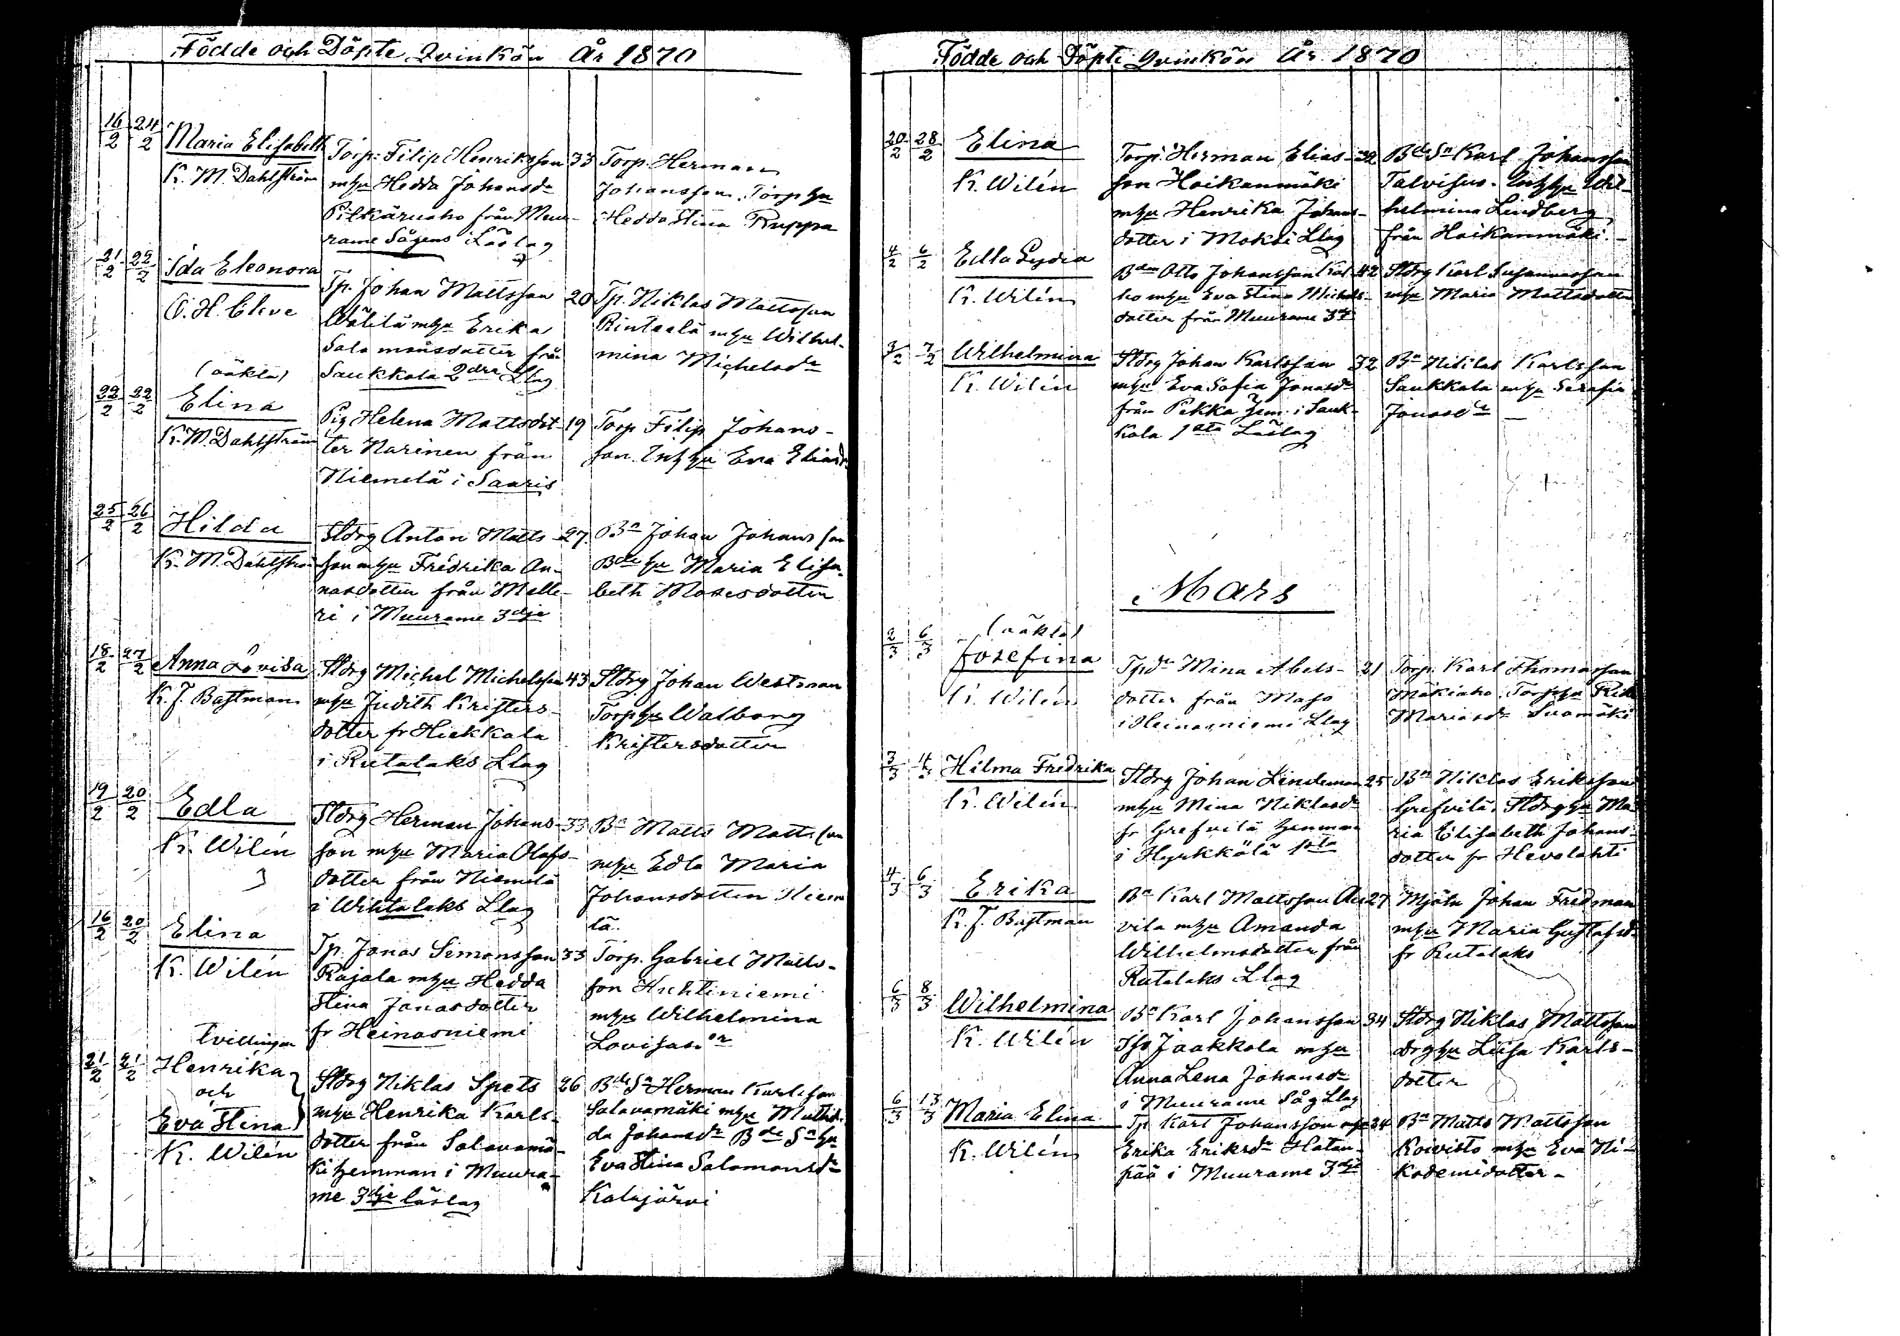 Födde och Döpte Qvinkön År 1870
16/2 24/2 Maria Elisabeth
K. M. Dahlström
Torp. Filip Henriksson 33
mhu Hedda Johansdr
från Muu-
rame Sågens Läslag
Torp. Herman
Johansson, Torp hu
Hedda Stina Ruppa
21/2 22/2 Ida Eleonora
O. H. Cleve
Tp. Johan Mattsson 20
mhu Erika
Salomonsdotter från
Saukkola 2dra Llag
Tp. Niklas Mattsson
Rintaala mhu Wilhel-
mina Michelsdr
(oäkta)
22/2 22/2 Elina
K. M. Dahlström
Pig Helena Mattsdot- 19
ter Narinen från
Niemelä i Saaris
Torp Filip Johans-
son. Inh hu Eva Eliasdr
25/2 26/2 Hilda
K. M. Dahlström
Stdrg Anton Matts- 27
son mhu Fredrika An-
nasdotter från Mälte-
ri i Muurame 3dje
Bn Johan Johansson
Bde hu Maria Elisa-
beth Mosesdotter
18/2 27/2 Anna Lovisa
K. J. Bastman
Stdrg Michel Michelsson 43
mhu Judith Kristers-
dotter fr Hiekkala
i Rutalaks Llag
Stdrg Johan Westman
Torp hu Walborg
Kristersdotter
19/2 20/2 Edla
K. Wilén
Stdrg Herman Johans- 33
son mhu Maria Olofs-
dotter från Niemelä
i Wihtalaks Llag
Bn Matts Mattsson
mhu Edla Maria
Johansdotter Niem
lä.
16/2 20/2 Elina
K. Wilén
Tp. Jonas Simonsson 33
Rajala mhu Hedda
Stina Jonasdotter
fr Heinosniemi
Torp. Gabriel Matts-
son Huhtiniemi
mhu Wilhelmina
Lovisasdr
Tvillingar
21/2 21/2 Henrika
och
Eva Stina
K. Wilén
Stdrg Niklas Spets 26
mhu Henrika Karls-
dotter från Salavamä-
ki hemman i Muura-
me 3dje läslag
Bde Sn Herman Karlsson
Salavamäki mhu Mathil-
da Johansdr Bde Sn hu
Eva Stina Salomonsdr
Kalajärvi
Födde och Döpte Qvinkön År 1870
20/2 28/2 Elina
K. Wilén
Torp. Herman Elias- 32
son Hoikanmäki
mhu Henrika Johans-
dotter i Moksi Llag
Bde Sn Karl Johansson
Talvisus. Inh hu Wil-
helmina Lindberg
från Hoikanmäki.
4/2 6/2 Edla Lydia
K. Wilén
Bden Otto Johansson Kal- 42
ho mhu Eva Stina Michels-
dotter från Muurame 3dje
Stdrg Karl Susannasson
mhu Maria Mattsdotter
3/2 7/2 Wilhelmina
K. Wilén
Stdrg Johan Karlsson 32
mhu Eva Sofia Jonasdr
från Pekka hem. i Sauk-
kola 1sta Läslag
Bn Niklas Karlsson
Saukkola mhu Serafia
Jonasdr
Mars
(oäkta)
2/3 6/3 Josefina
K. Wilén
Tpdr Mina Abels- 21
dotter från Maso
i Heinosniemi Llag
Torp. Karl Thomasson
Mäkiaho. Torp hu
Mariasdr Suomäki
3/3 4/3 Hilma Fredrika
K. Wilén
Stdrg Johan Lindeman 25
mhu Mina Niklasdr
fr Grefvilä hemman
i Hyrkkölä 1sta
Bn Niklas Eriksson
Grefvilä. Stdrg hu Ma-
ria Elisabeth Johans-
dotter fr Hevolahti
4/3 6/3 Erika
K. J. Bastman
Bn Karl Mattsson Au- 27
vila mhu Amanda
Wilhelmsdotter från
Rutalaks Llag
Mjöln Johan Fredman
mhu Maria Gustafsdr
fr Rutalaks
6/3 8/3 Wilhelmina
K. Wilén
Bn Karl Johansson 34
Iso Jaakkola mhu
Anna Lena Johansdr
i Muurame Såg Llag
Stdrg Niklas Mattsson
drg hu Lisa Karls-
dotter
6/3 13/3 Maria Elina
K. Wilén
Tp Karl Johansson mhu 24
Erika Eriksdr Hatan-
pää i Muurame 3dje
Bn Matts Mattsson
Koivisto mhu Eva Ni-
kodemidotter